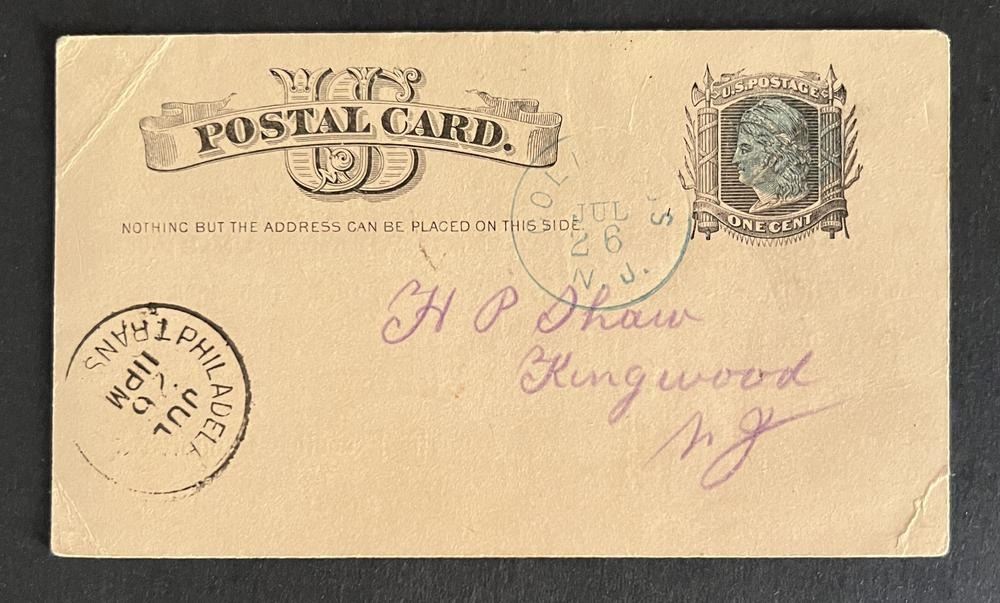 US
POSTAL CARD.
U.S. POSTAGE
ONE CENT
NOTHING BUT THE ADDRESS CAN BE PLACED ON THIS SIDE.
JUL
26
N.J.
H P Shaw
Kingwood
NJ
PHILADEL
TRANS
JUL
11PM